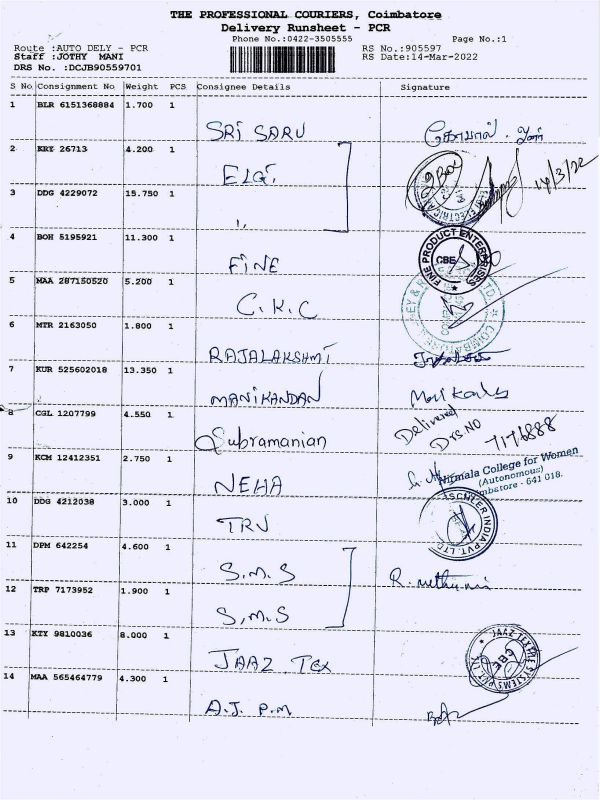 THE PROFESSIONAL COURIERS, Coimbatore
Delivery Runsheet - PCR
Phone No.:0422-3505555
Page No.:1
Route :AUTO DELY - PCR
RS No.:905597
Staff :JOTHY MANI
RS Date:14-Mar-2022
DRS No. :DCJB90559701
S No Consignment No Weight PCS Consignee Details Signature
1 BLR 6151368884 1.700 1
SRI SARU
2 KRY 26713 4.200 1
ELGI
14/3/22
3 DDG 4229072 15.750 1
4 BOH 5195921 11.300 1
FINE
FINE PRODUCT ENTERPRISES
CBE
5 MAA 287150520 5.200 1
C.K.C
6 MTR 2163050 1.800 1
RAJALAKSHMI
7 KUR 525602018 13.350 1
MANIKANDAN
8 CGL 1207799 4.550 1
Subramanian
Delivered
DRS NO
9 KCM 12412351 2.750 1
NEHA
Nirmala College for Women
(Autonomous)
641 018.
10 DDG 4212038 3.000 1
TRV
INDIA PVT. LTD
11 DPM 642254 4.600 1
S.M.S
12 TRP 7173952 1.900 1
S.M.S
13 KTY 9810036 8.000 1
JAAZ Tex
JAAZ
CBE
14 MAA 565464779 4.300 1
A.J. P.M